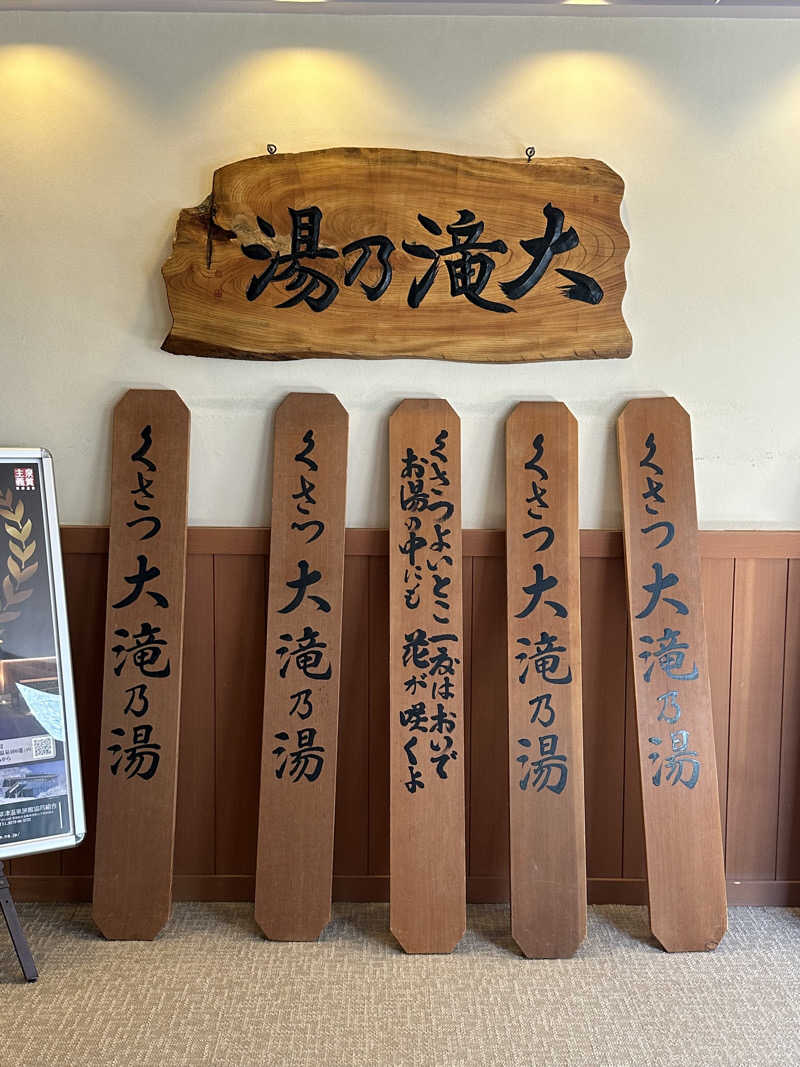 大滝乃湯
くさつ大滝乃湯
くさつ大滝乃湯
くさつよいとこ一度はおいで
お湯の中にも花が咲くよ
くさつ大滝乃湯
くさつ大滝乃湯
泉質
主義